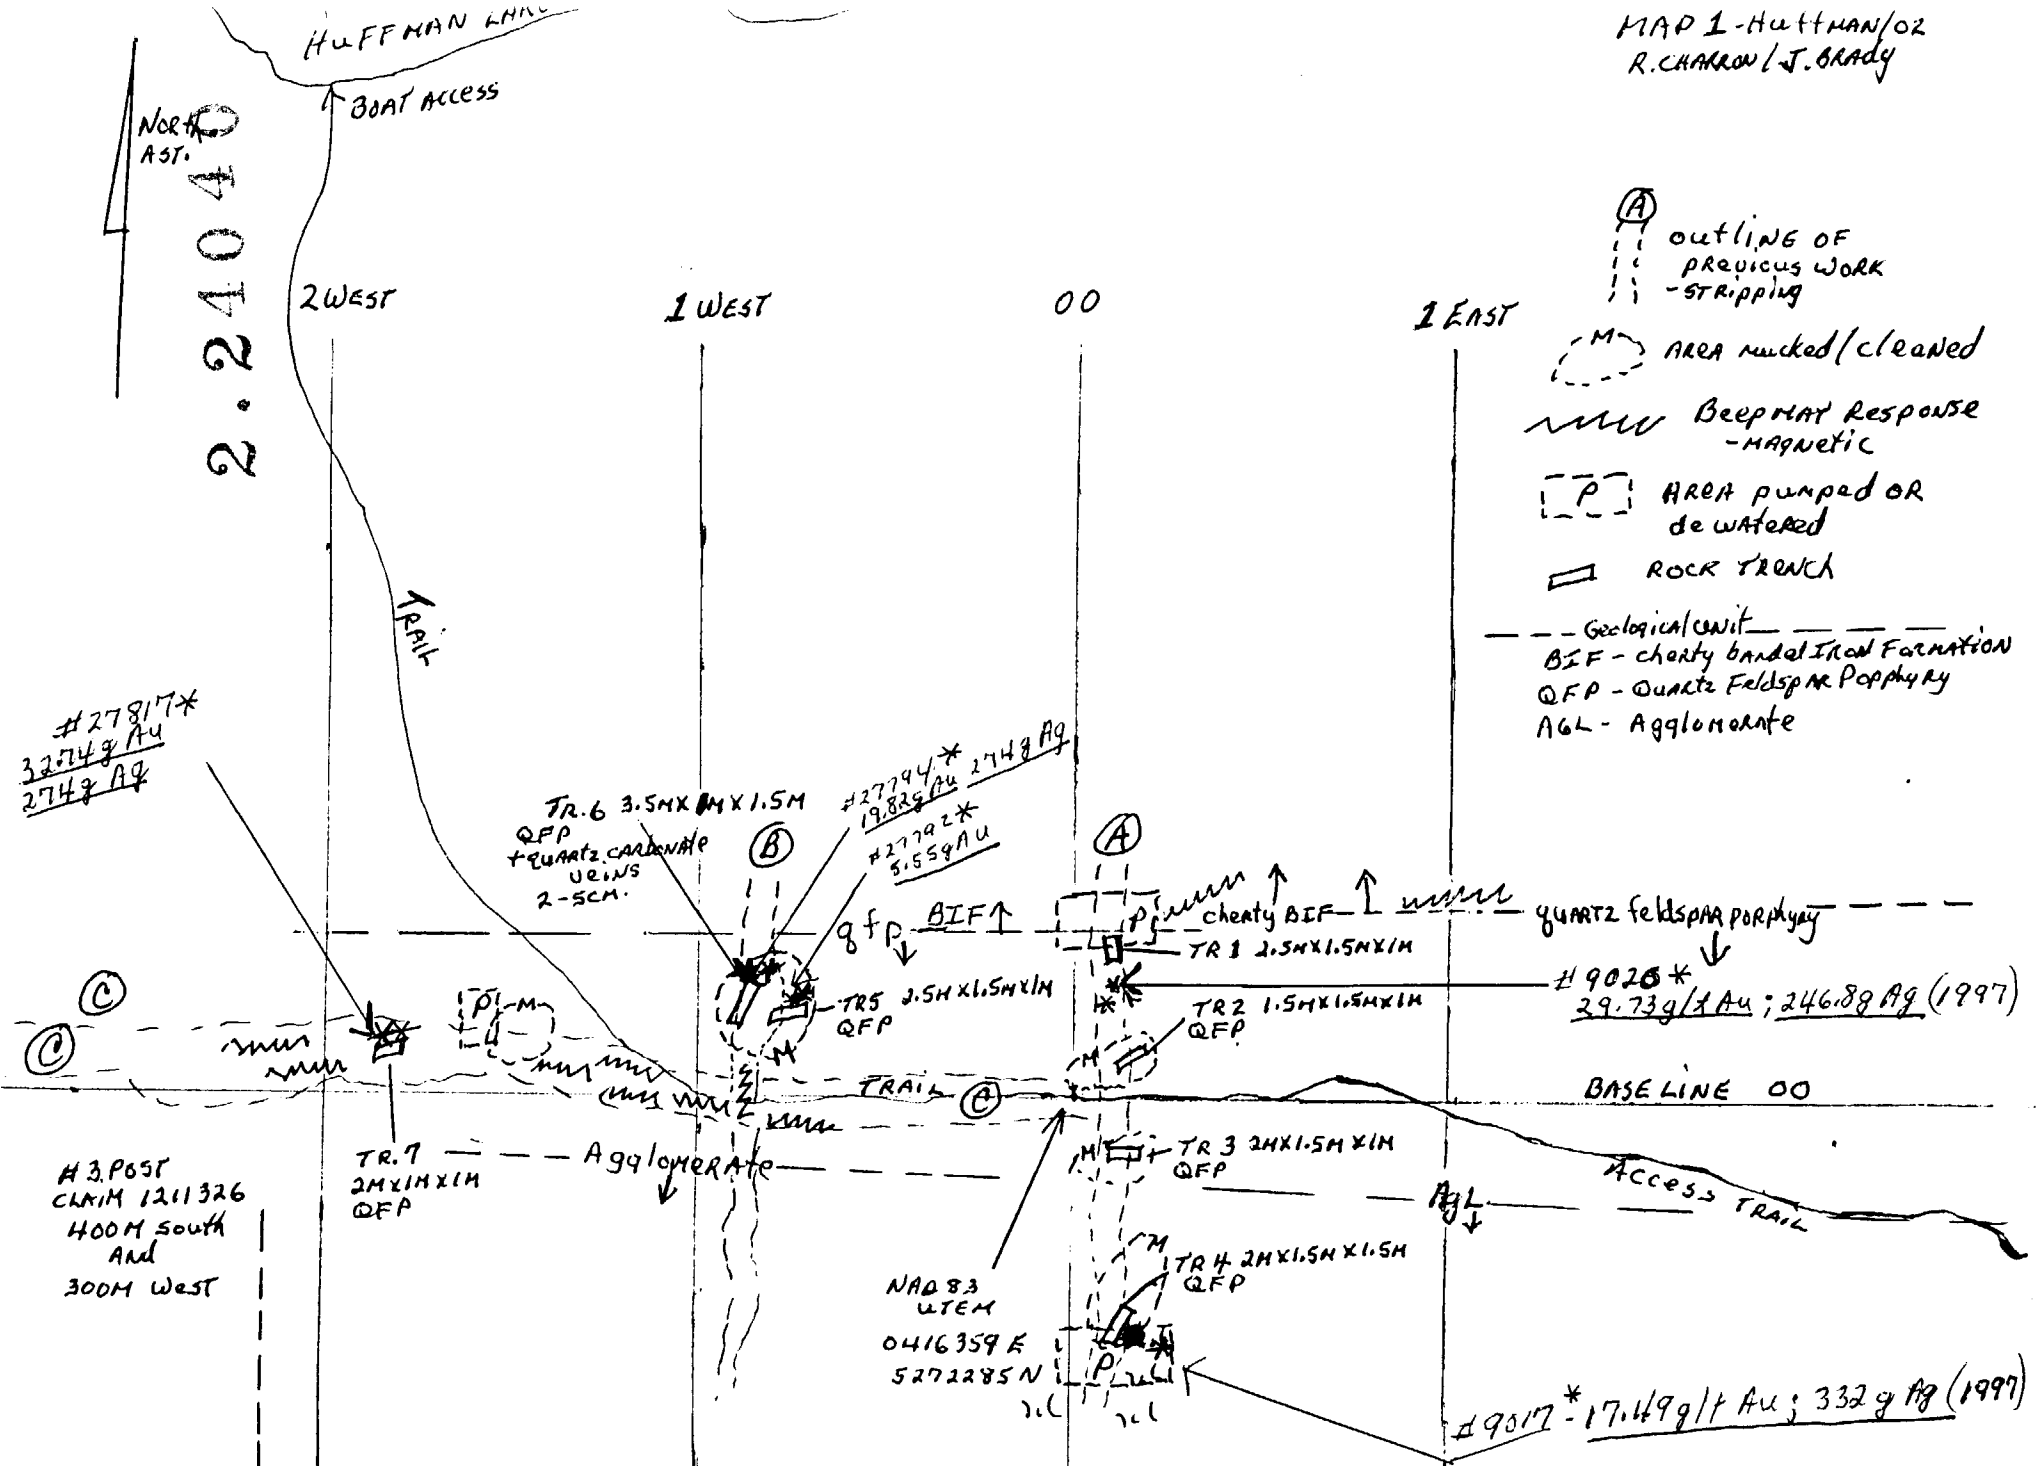 HUFFMAN LAKE
MAP 1-HuffMAN/02
R.CHARRON/J.BRADY
BOAT ACCESS
NORTH
AST.
2.24040
2 WEST
1 WEST
00
1 EAST
A
outliNE OF
previous WORK
-STRipping
M
AREA mucked/cleaned
BeepMAT Response
-MAgNetic
P
AREA pumped OR
de watered
ROCK TRENCH
Geological unit
BIF - cherty banded Iron FORMATION
QFP - Quartz FeldspAR Popphyry
AGL - Agglomerate
TRAIL
#27817*
32.74g Au
274g Ag
TR.6 3.5MX1MX1.5M
QFP
+ quartz.carbonate
veins
2-5CM.
B
#27794*
19.82g Au 274g Ag
#27792*
5.55g Au
A
qfp
BIF
P
cherty BIF
quartz feldspAR poRphyry
TR 1 2.5MX1.5MX1M
C
C
P
M
TR5 2.5MX1.5MX1M
QFP
M
TR2 1.5MX1.5MX1M
QFP
M
#9020*
29.73g/t Au; 246.8g Ag (1997)
TRAIL
C
BASELINE 00
TR.7
2MX1MX1M
QFP
Agglomerate
M
TR 3 2MX1.5MX1M
QFP
AgL
Access TRAIL
#3.POST
CLAIM 1211326
400M South
And
300M West
NAD 83
UTEM
0416359 E
5272285 N
M
TR4 2MX1.5MX1.5M
QFP
P
#9017* - 17.49g/t Au; 332g Ag (1997)